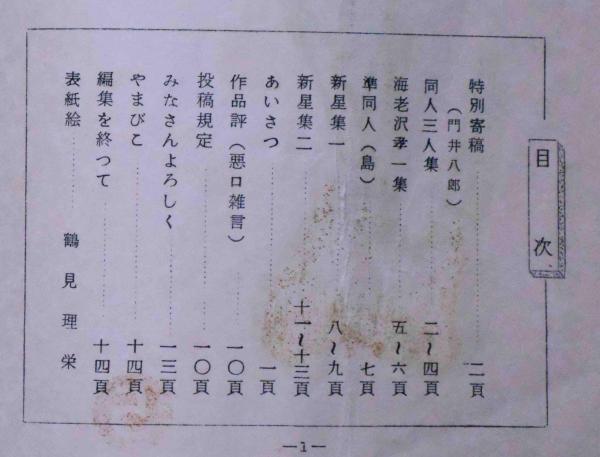 目次
特別寄稿……………二頁
（門井八郎）
同人三人集……………二〜四頁
海老沢孝一集……………五〜六頁
準同人（島）……………七頁
新星集一……………八〜九頁
新星集二……………十一〜十三頁
あいさつ……………一頁
作品評（悪口雑言）……………一〇頁
投稿規定……………一〇頁
みなさんよろしく……………一三頁
やまびこ……………十四頁
編集を終つて……………十四頁
表紙絵……………鶴見理栄
—1—